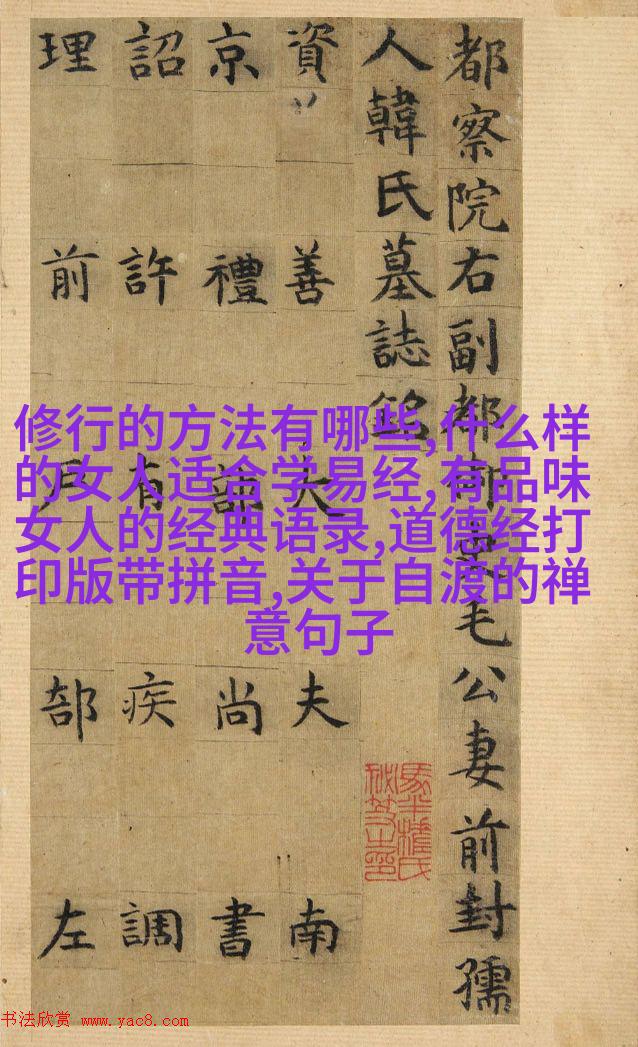 都察院右副都御史毛公妻前封孺
人韓氏墓誌銘
資善大夫南
京禮部尚書
詔許有疾調
理前戶部左
修行的方法有哪些,什么样
的女人适合学易经,有品味
女人的经典语录,道德经打
印版带拼音,关于自渡的禅
意句子
书法欣赏 www.yac8.com